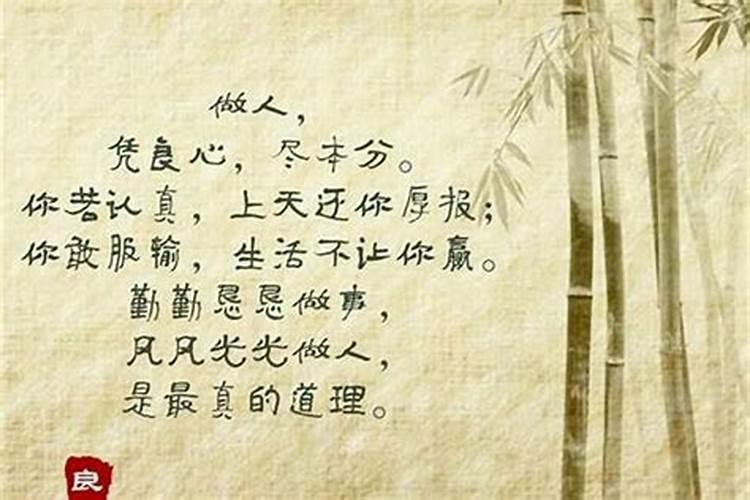 做人，
凭良心，尽本分。
你若认真，上天还你厚报；
你敢服输，生活不让你赢。
勤勤恳恳做事，
风风光光做人，
是最真的道理。
良